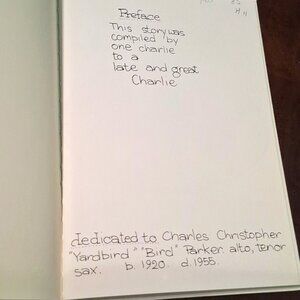 Preface
This story was
compiled by
one charlie
to a
late and great
Charlie
dedicated to Charles Christopher
"Yardbird" "Bird" Parker. alto, tenor
sax. b. 1920. d. 1955.